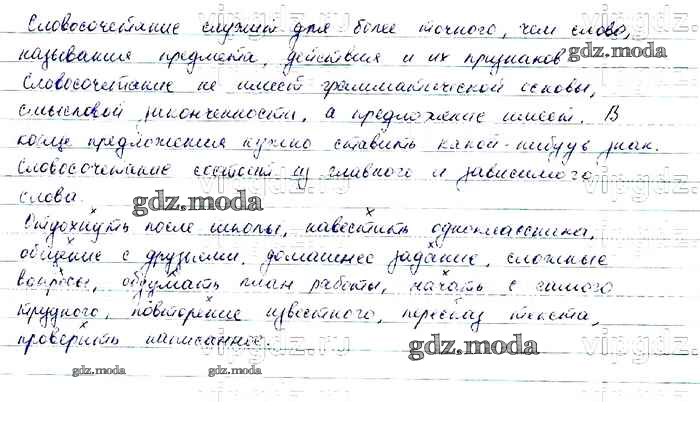 Словосочетание служит для более точного, чем слово,
называния предмета, действия и их признаков
gdz.moda
Словосочетание не имеет грамматической основы,
смысловой законченности, а предложение имеет. В
конце предложения нужно ставить какой-нибудь знак.
Словосочетание состоит из главного и зависимого
слова.
gdz.moda
vipgdz.ru
Отдохнуть после школы, навестить одноклассника,
общение с друзьями, домашнее задание, сложные
вопросы, обдумать план работы, начать с самого
трудного, повторение известного, пересказ текста,
проверить написанное.
gdz.moda
gdz.moda
gdz.moda